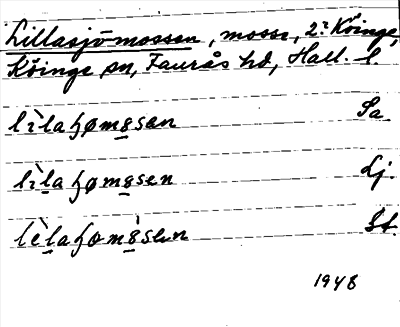 Lillasjö-mossen, mosse, 2: Köinge,
Köinge sn, Faurås hd, Hall. l.
lìlaɧømꞛsən Sa
lìlaɧømꞛsen Lj.
lèlaɧomꞛ̀sen St.
1948